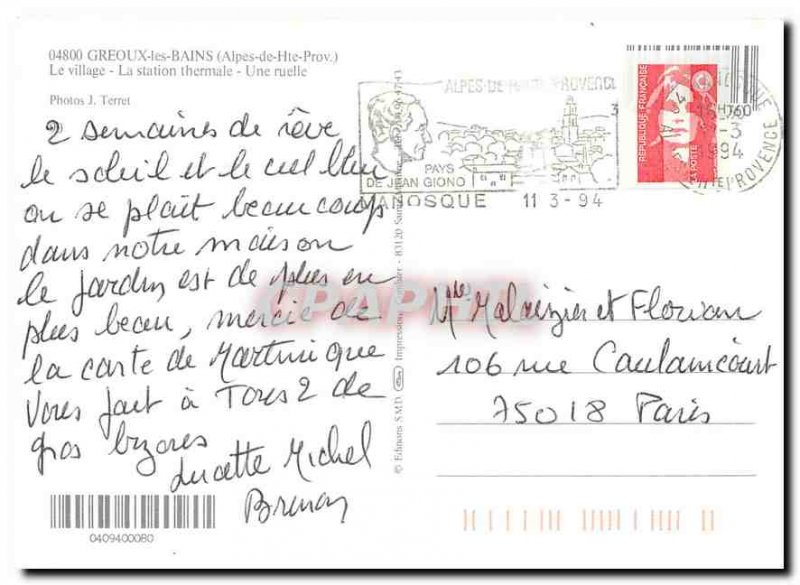 04800 GREOUX-les-BAINS (Alpes-de-Hte-Prov.)
Le village - La station thermale - Une ruelle
Photos J. Terret
2 semaines de rêve
le soleil et le ciel bleu
on se plaît beaucoup
dans notre maison
le jardin est de plus en
plus beau, mercie de
la carte de Martinique
Vous fait à Tous 2 de
gros bizores
Lucette Michel
0409400080
© Editions S.M.D.
Impression
83120
ALPES DE HAUTE PROVENCE
PAYS
DE JEAN GIONO
MANOSQUE 11 3-94
REPUBLIQUE FRANÇAISE
LA POSTE
1994
PROVENCE
Mlles Malaizier et Florian
106 rue Caulaincourt
75018 Paris